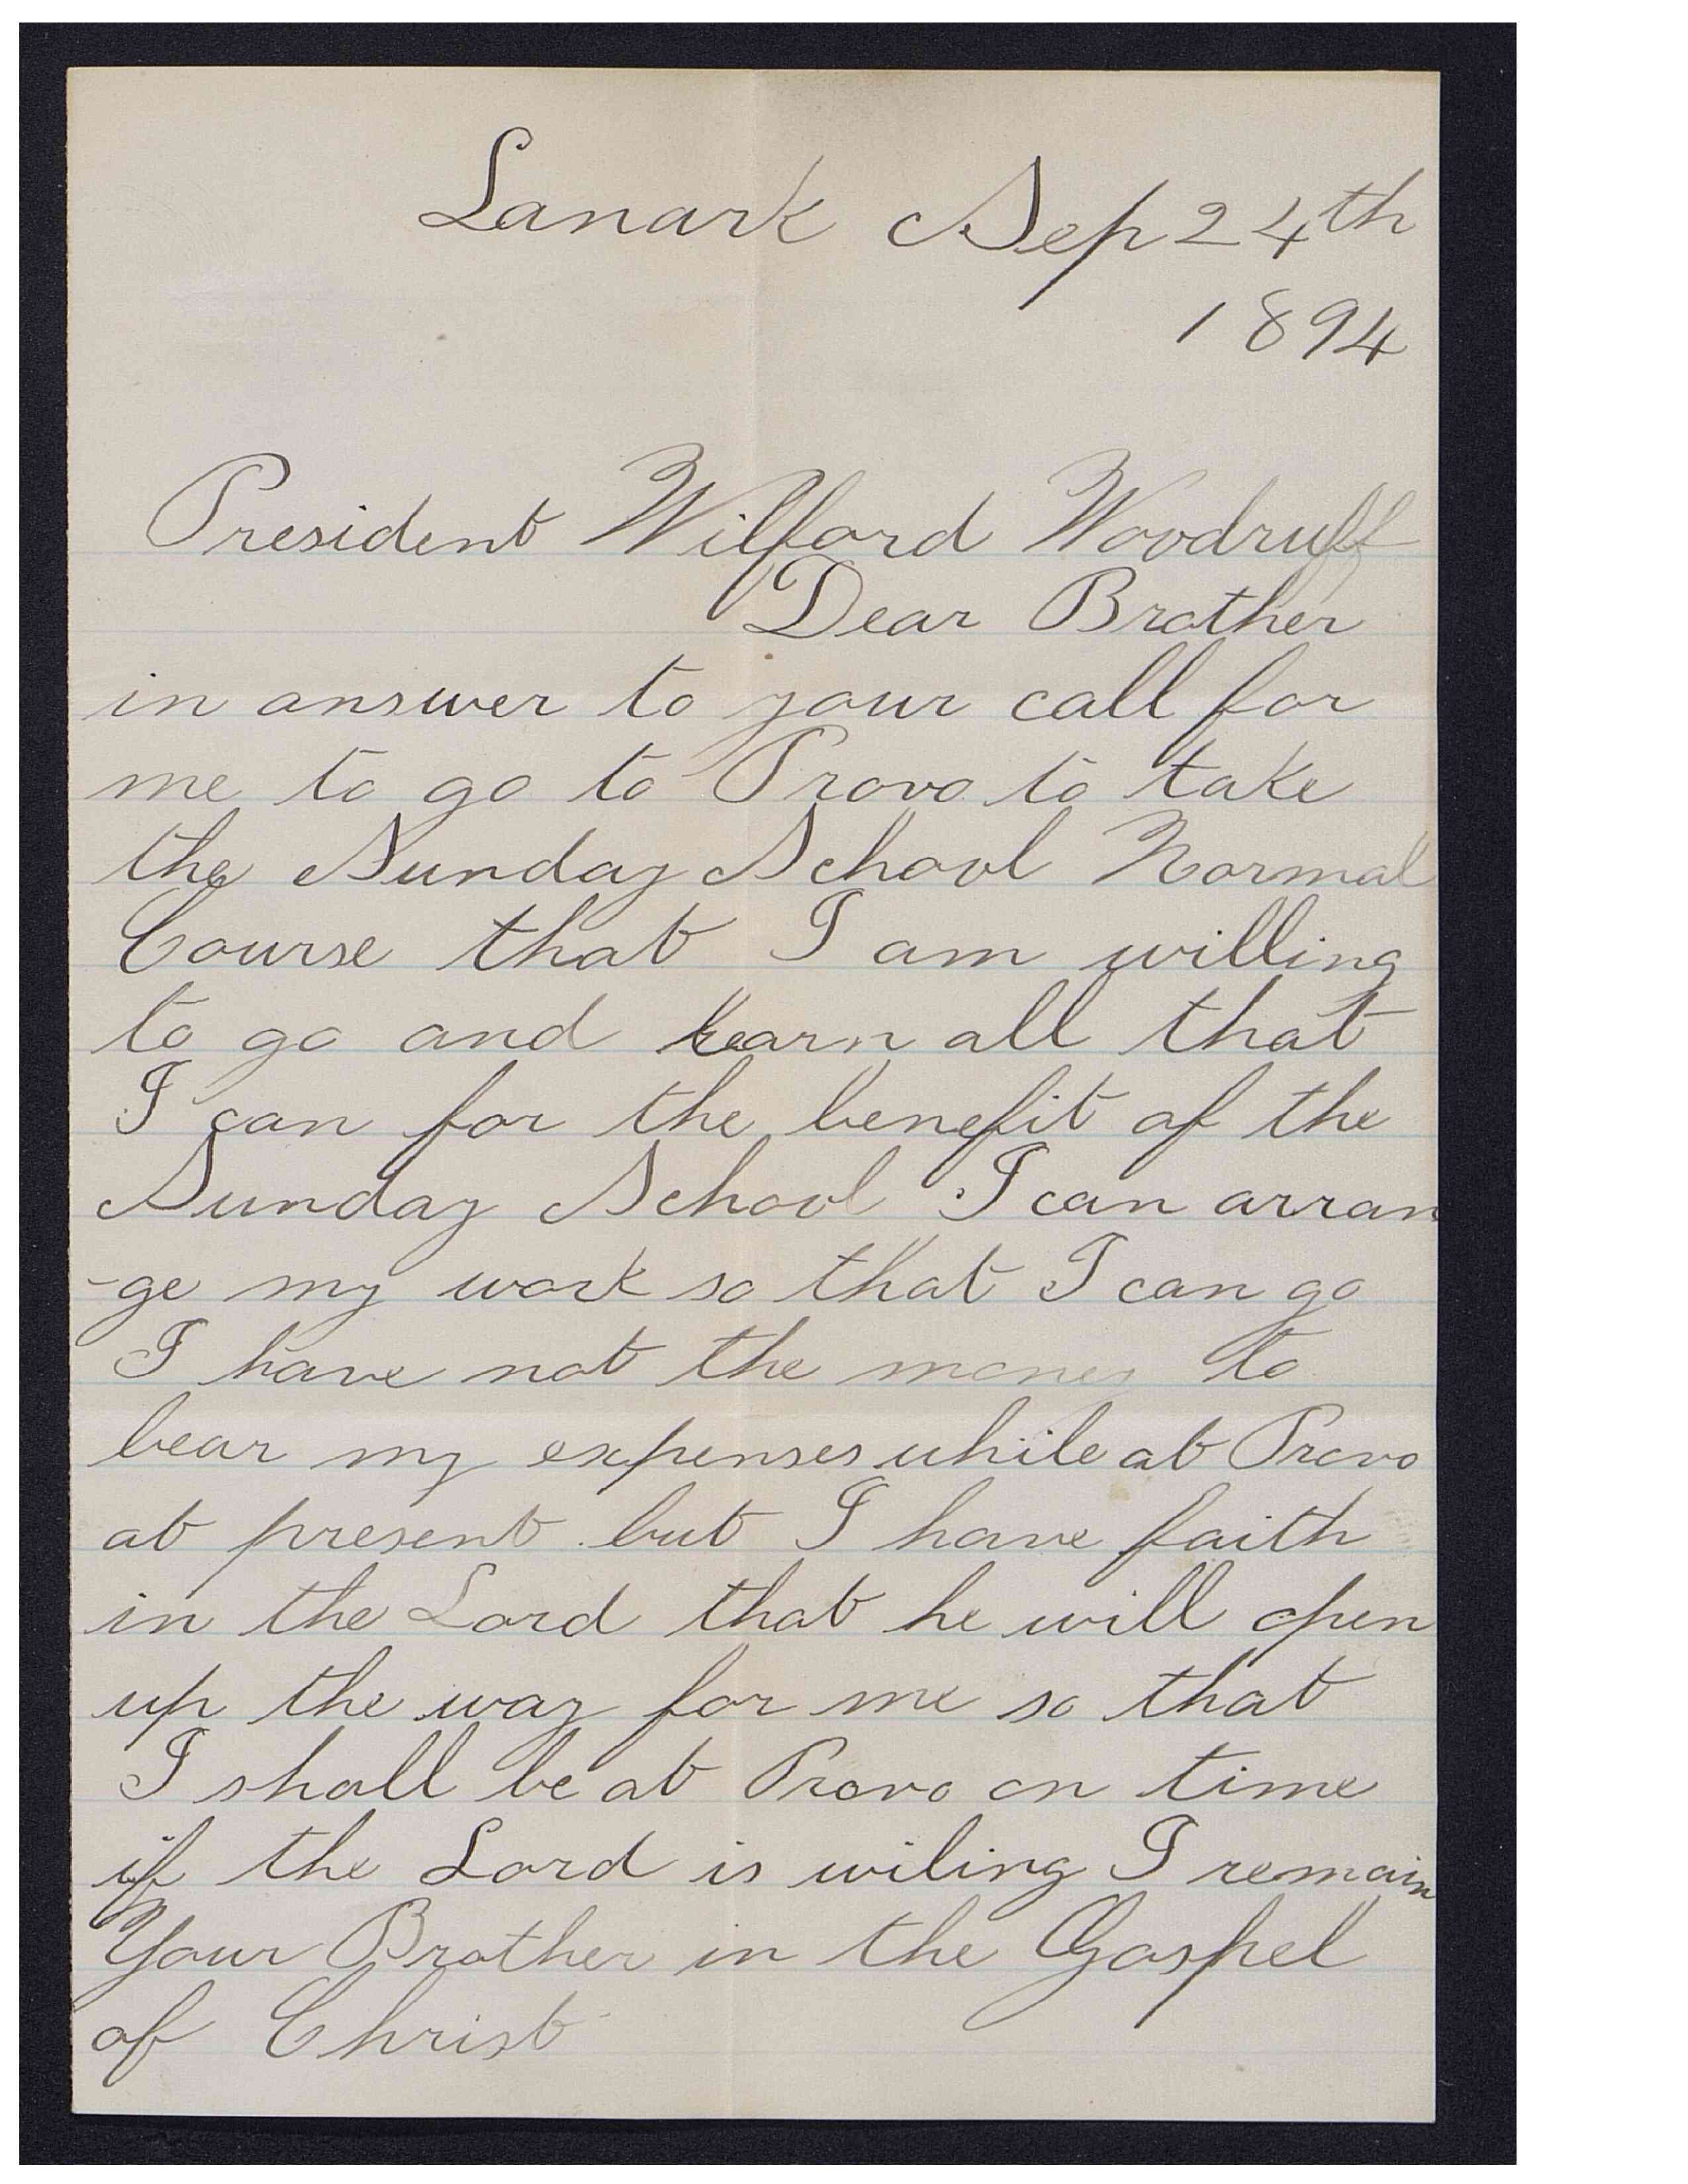 Lanark Sep 24th
1894
President Wilford Woodruff
Dear Brother
in answer to your call for
me to go to Provo to take
the Sunday School Normal
Course that I am willing
to go and learn all that
I can for the benefit of the
Sunday School I can arran
-ge my work so that I can go
I have not the money to
bear my expenses while at Provo
at present but I have faith
in the Lord that he will open
up the way for me so that
I shall be at Provo on time
if the Lord is wiling I remain
Your Brother in the Gospel
of Christ